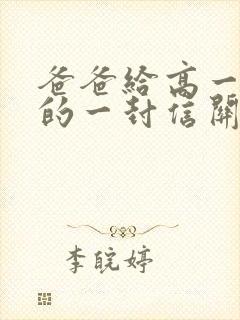 爸爸給高一
的一封信開
李皖婷